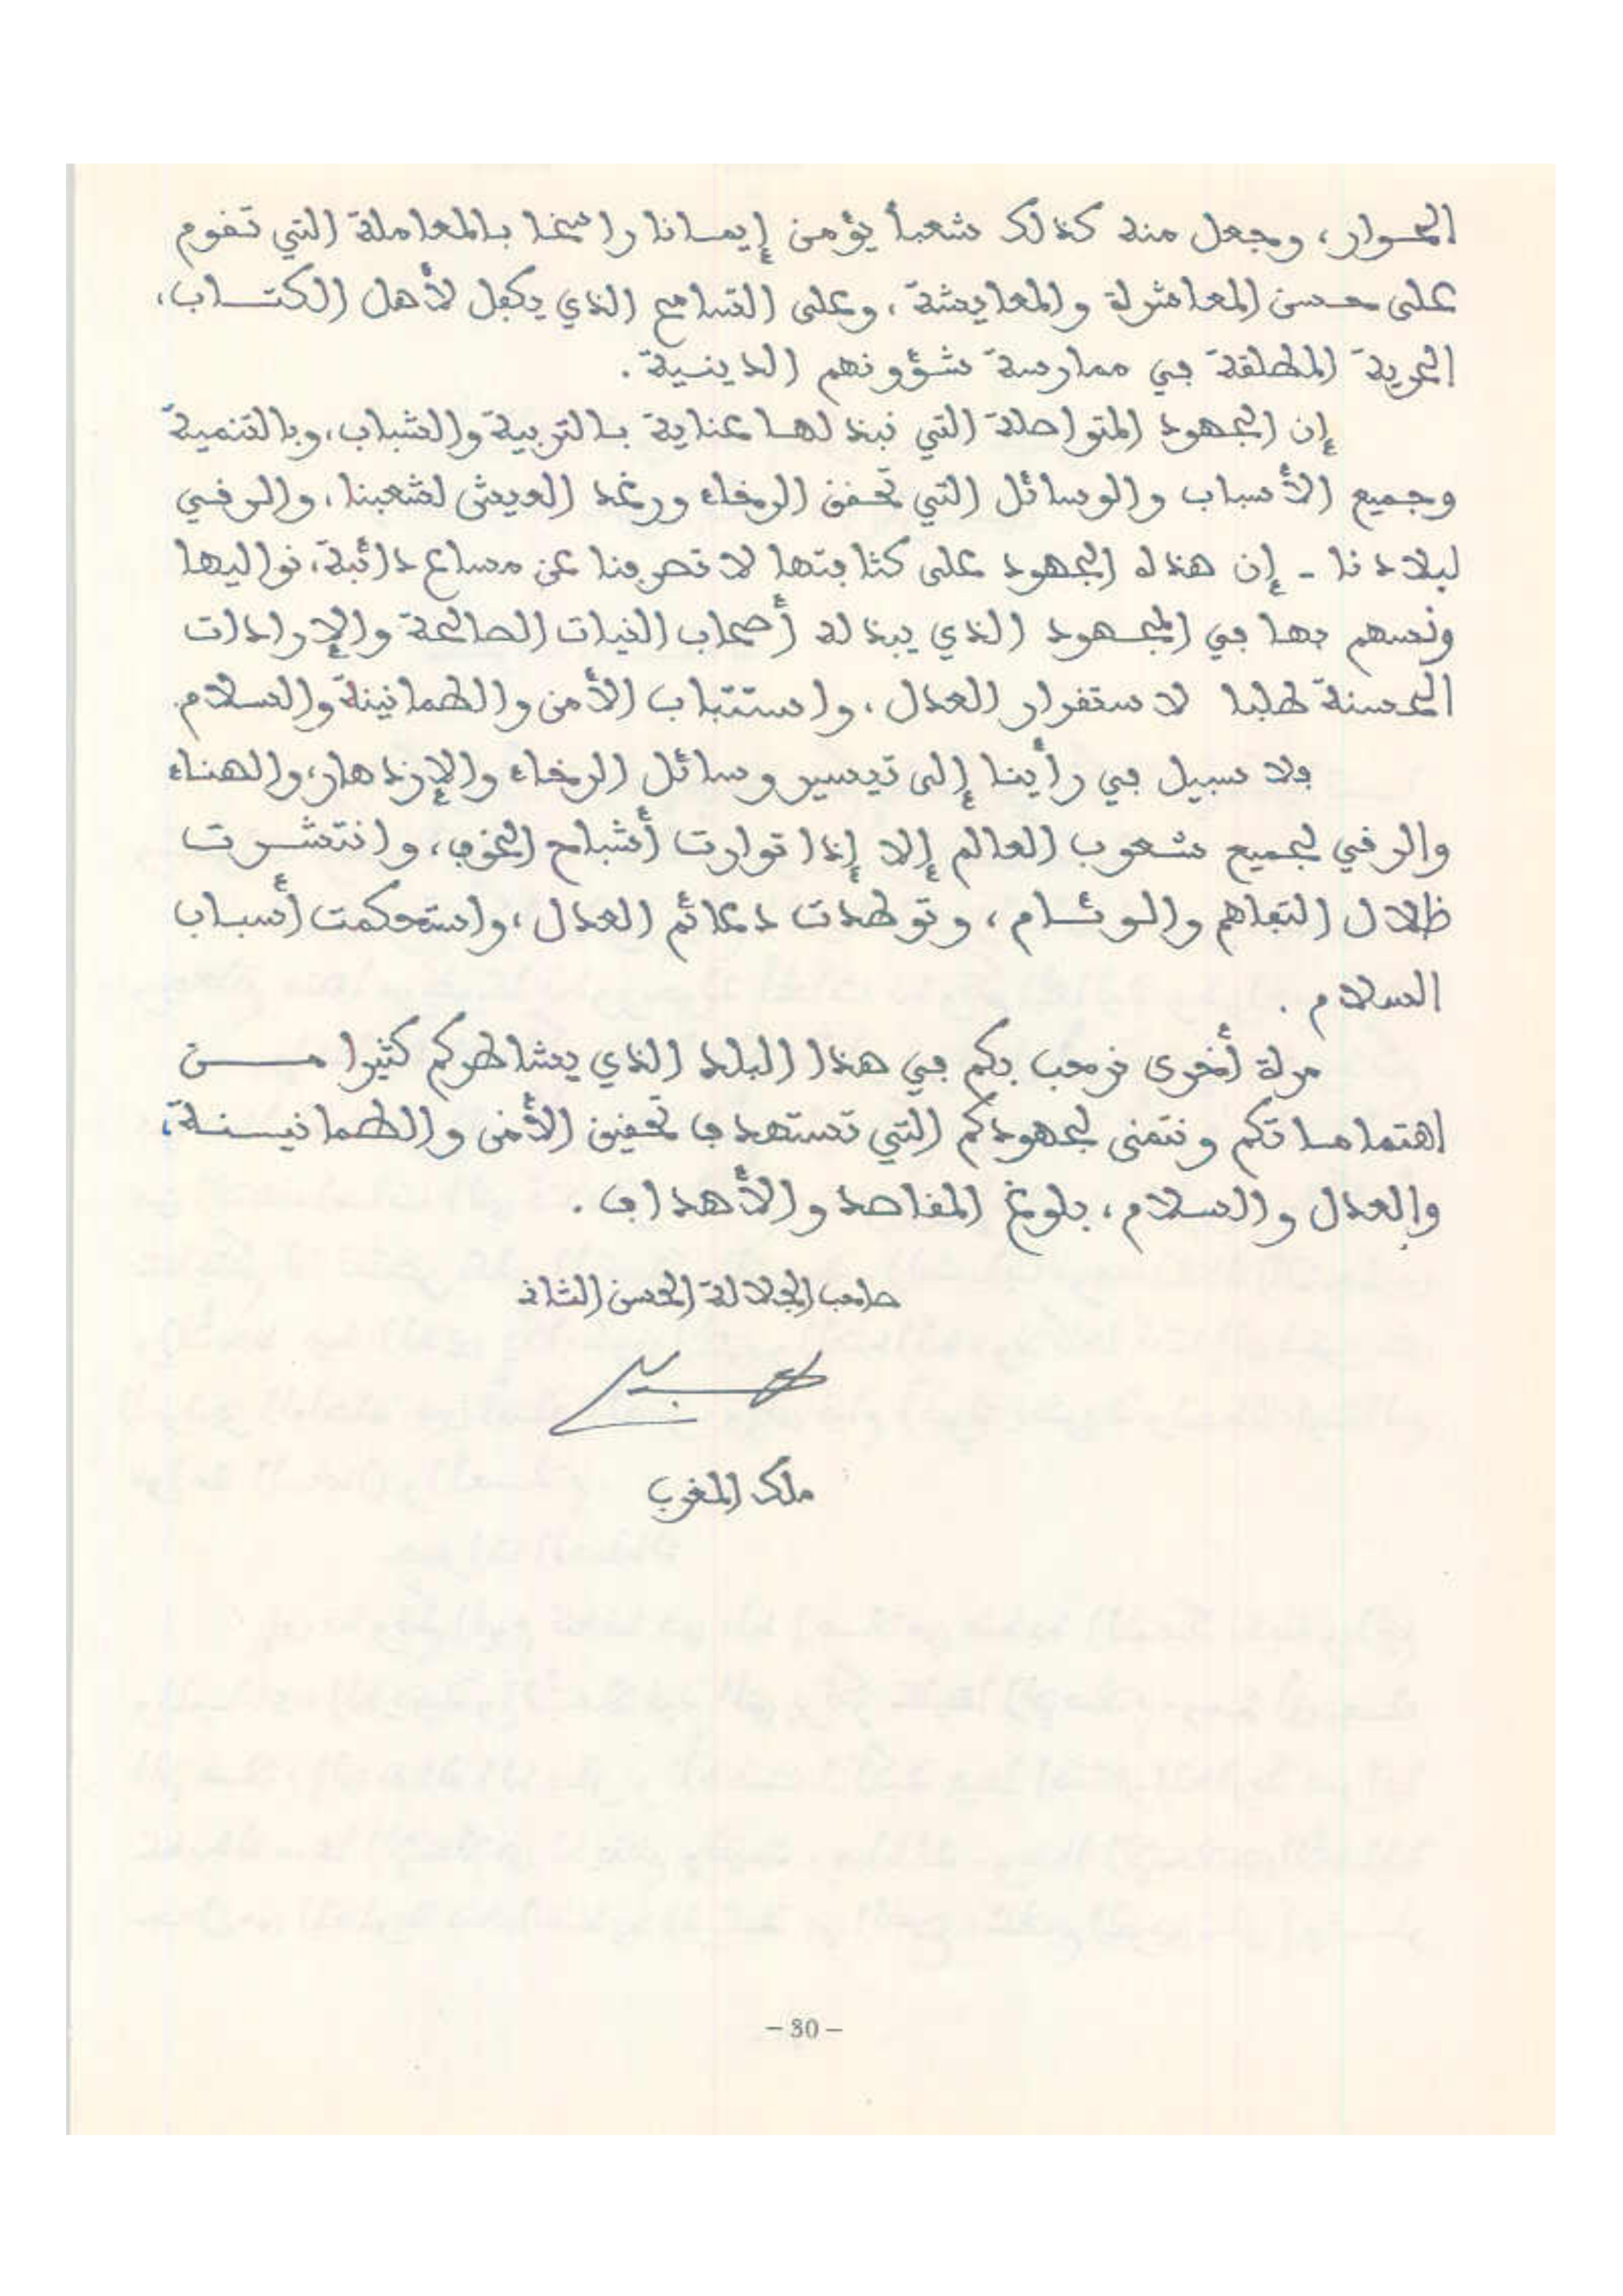 الحوار، وجعل منه كذلك شعبا يؤمن إيمانا راسخا بالمعاملة التي تقوم
على حسن المعاشرة والمعايشة، وعلى التسامح الذي يكفل لأهل الكتاب،
الحرية المطلقة في ممارسة شؤونهم الدينية.
إن الجهود المتواصلة التي نبذلها عناية بالتربية والشباب، وبالتنمية
وجميع الأسباب والوسائل التي تحقق الرخاء ورغد العيش لشعبنا، والرقي
لبلادنا - إن هذه الجهود على كثافتها لا تصرفنا عن مساع دائبة، نواليها
ونسهم بها في المجهود الذي يبذله أصحاب النيات الصالحة والإرادات
الحسنة طلبا لاستقرار العدل، واستتباب الأمن والطمانينة والسلام.
فلا سبيل في رأينا إلى تيسير وسائل الرخاء والإزدهار، والهناء
والرقي لجميع شعوب العالم إلا إذا توارت أشباح الخوف، وانتشرت
ظلال التفاهم والوئام، وتوطدت دعائم العدل، واستحكمت أسباب
السلام.
مرة أخرى نرحب بكم في هذا البلد الذي يشاطركم كثيرا من
اهتماماتكم ونتمنى لجهودكم التي تستهدف تحقيق الأمن والطمانينة،
والعدل والسلام، بلوغ المقاصد والأهداف.
صاحب الجلالة الحسن الثاني
ملك المغرب
- 30 -